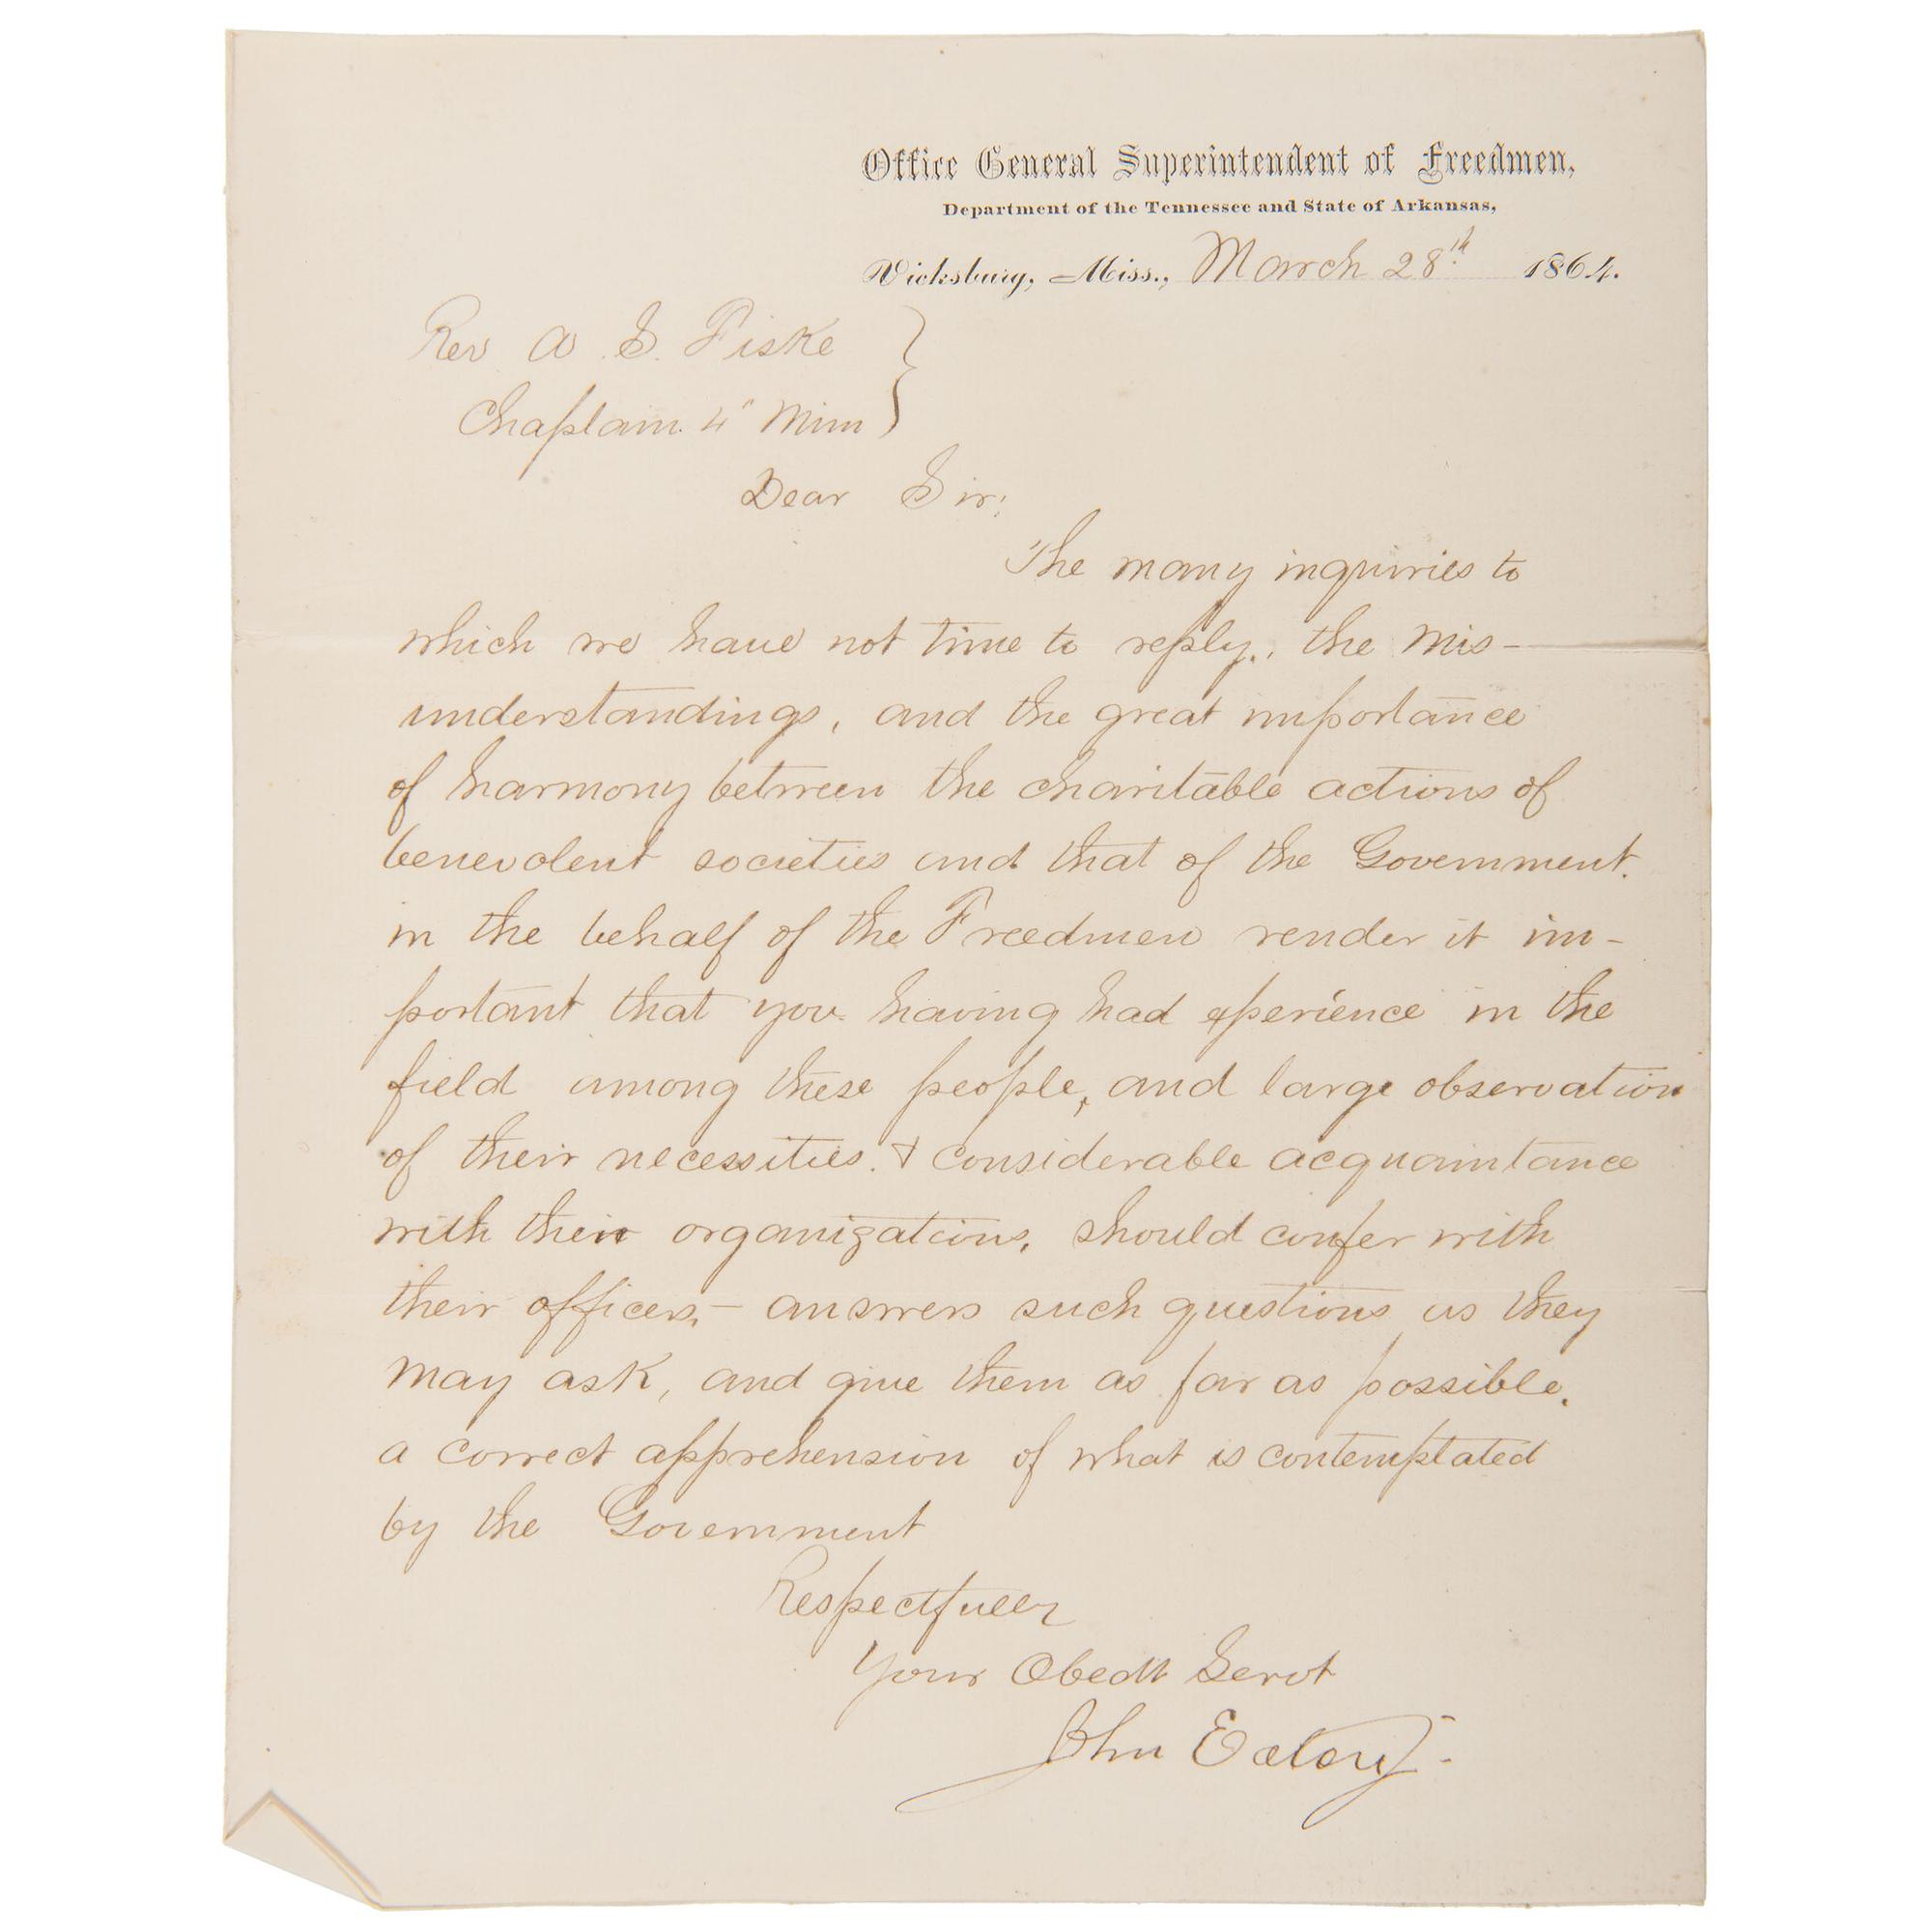 Office General Superintendent of Freedmen,
Department of the Tennessee and State of Arkansas,
Vicksburg, Miss., March 28th 1864.
Rev A. S. Fiske
Chaplain 4" Minn
Dear Sir;
The many inquiries to
which we have not time to reply, the mis-
understandings, and the great importance
of harmony between the charitable actions of
benevolent societies and that of the Government.
in the behalf of the Freedmen render it im-
portant that you having had experience in the
field among these people, and large observation
of their necessities. & considerable acquaintance
with their organizations, should confer with
their officers, - answer such questions as they
may ask, and give them as far as possible,
a correct apprehension of what is contemplated
by the Government
Respectfully
Your Obedt Servt
John Eaton Jr.